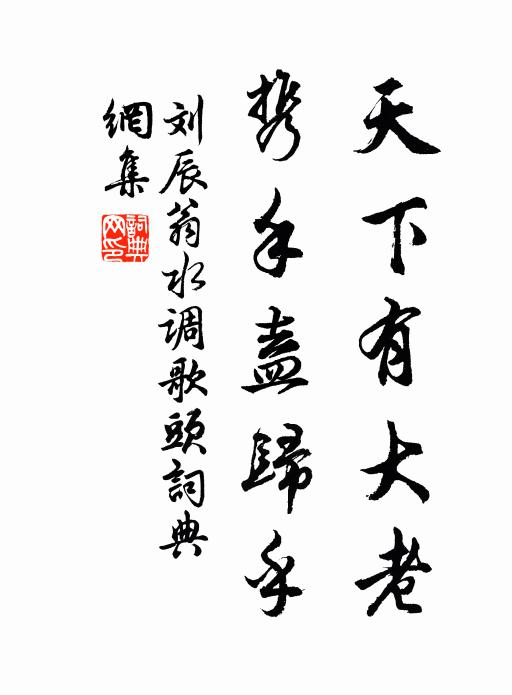 天下有大老
携手盍歸乎
刘辰翁水调歌頭詞典
網集
詞典網印